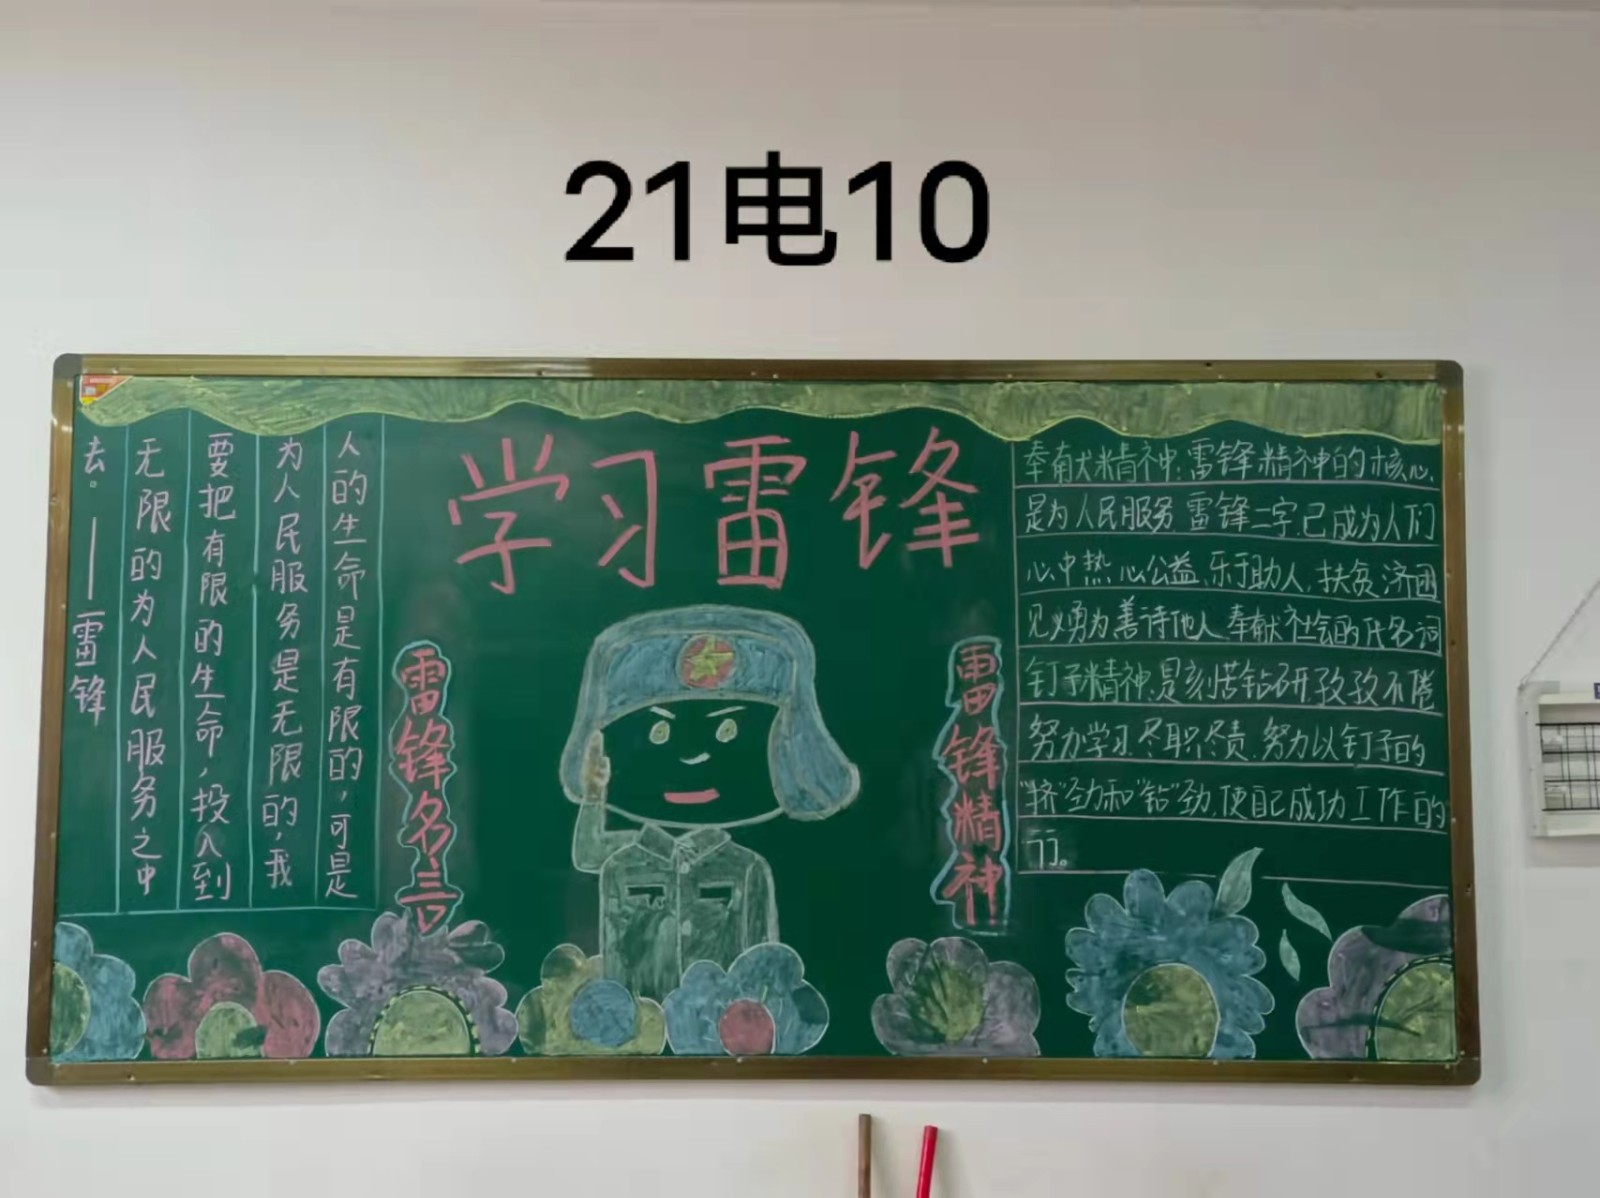 21电10
学习雷锋
人的生命是有限的，可是
为人民服务是无限的，我
要把有限的生命，投入到
无限的为人民服务之中
去。——雷锋
雷锋名言
雷锋精神
奉献精神：雷锋精神的核心，
是为人民服务 雷锋二字，已成为人们
心中热心公益，乐于助人，扶贫济困
见义勇为善待他人，奉献社会的代名词
钉子精神，是刻苦钻研，孜孜不倦
努力学习，尽职尽责，努力以钉子的
"挤"劲和"钻"劲，使自己成功工作的
行。